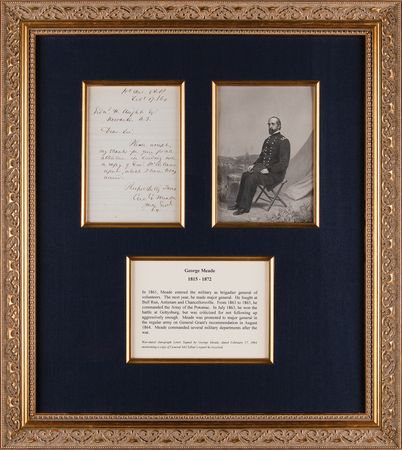 Dear Sir
Please accept
my thanks for your kind
attention in sending me
a copy of Genl McClellan's
report, which I have
Respectfully Yours
Geo. G. Meade
George Meade
1815 - 1872
In 1861, Meade entered the military as brigadier general of
volunteers. The next year, he made major general. He fought at
Bull Run, Antietam and Chancellorsville. From 1863 to 1865, he
commanded the Army of the Potomac. In July 1863, he won the
battle at Gettysburg, but was criticized for not following up
aggressively enough. Meade was promoted to major general in
the regular army on General Grant's recommendation in August
1864. Meade commanded several military departments after the
war.
War-dated Autograph Letter Signed by George Meade, dated February 17, 1864
mentioning a copy of General McClellan's report he received.